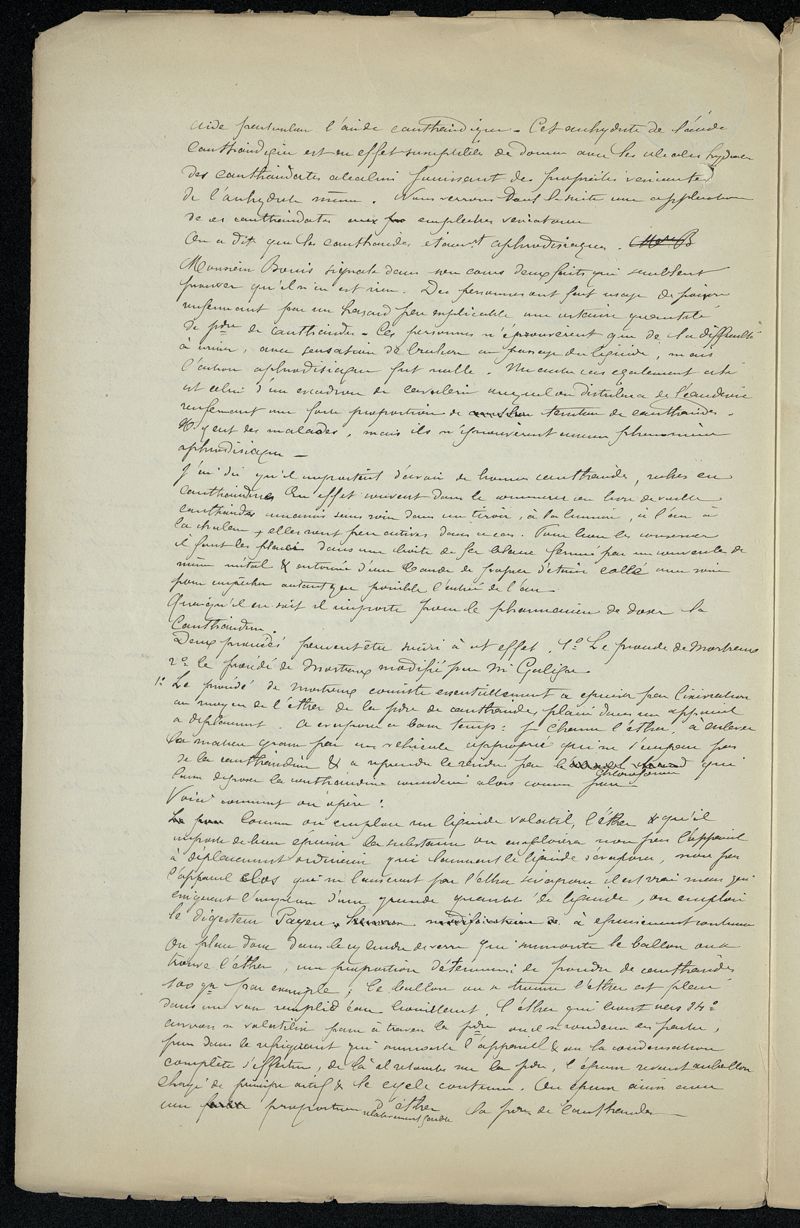 acide particulier l'acide cantharidique - Cet anhydride de l'acide
cantharidique est en effet susceptible de donner avec les alcalis hydratés
des cantharidates alcalins jouissant des propriétés vésicantes
de l'anhydride même. Nous verrons dans la suite une application
de ces cantharidates aux emplâtres vésicatoires
On a dit que les cantharides étaient aphrodisiaques.
Monsieur Bouis signale dans son cours deux faits qui semblent
prouver qu'il n'en est rien. Des personnes ont fait usage de poivre
renfermant par un hasard peu explicable une certaine quantité
de pdre de cantharides - Ces personnes n'éprouvèrent que de la difficulté
à uriner, avec sensation de brûlure au passage du liquide, mais
l'action aphrodisiaque fut nulle. Un autre cas également cité
est celui d'un escadron de cavalerie auquel on distribua de l'eau de vie
renfermant une forte proportion de teinture de cantharides -
Il y eut des malades, mais ils n'éprouvèrent aucun phénomène
aphrodisiaque -
J'ai dit qu'il importait d'avoir de bonnes cantharides, riches en
cantharidine En effet souvent dans le commerce on livre de vieilles
cantharides conservées sans soin dans un tiroir, à la lumière, à l'air à
la chaleur, elles sont peu actives dans ce cas. Pour bien les conserver
il faut les placer dans une boîte de fer blanc fermée par un couvercle de
même métal & entourée d'une bande de papier d'étain collé avec soin
pour empêcher autant que possible l'entrée de l'air
Quoiqu'il en soit il importe pour le pharmacien de doser la
Cantharidine.
Deux procédés peuvent être suivis à cet effet. 1º Le procédé de Mortreux
2º le procédé de Mortreux modifié par Mr Galippe
1º Le procédé de Mortreux consiste essentiellement à épuiser par lixiviation
au moyen de l'éther de la pdre de cantharides placée dans un appareil
à déplacement à évaporer à basse tempre je chasse l'éther, à enlever
la matière grasse par un véhicule approprié qui ne s'empare pas
de la cantharidine & à reprendre le résidu par le chloroforme qui
laisse déposer la cantharidine considérée alors comme pure
Voici comment on opère :
Comme on emploie un liquide volatil, l'éther & qu'il
importe de bien épuiser la substance on emploiera non pas l'appareil
à déplacement ordinaire qui laissant le liquide s'évaporer, non pas
l'appareil clos qui ne laissent pas l'éther s'évaporer il est vrai mais qui
exigeant l'emploi d'une grande quantité de liquide, on emploie
le digesteur Payen à épuisement continu
On place donc dans le cylindre de verre qui surmonte le ballon où se
trouve l'éther, une proportion déterminée de poudre de cantharides
100 gr par exemple; le ballon où se trouve l'éther est placé
dans un vase rempli d'eau bouillante, l'éther qui bout vers 34º
environ se volatilise passe à travers la pdre où il se condense en partie,
puis dans le réfrigérant qui surmonte l'appareil & où la condensation
complète s'effectue, de là il retombe sur la pdre, l'épuise revient au ballon
chargé de principe actif & le cycle continue. On épuise ainsi avec
une proportion d'éther relativement faible la pdre de cantharides -